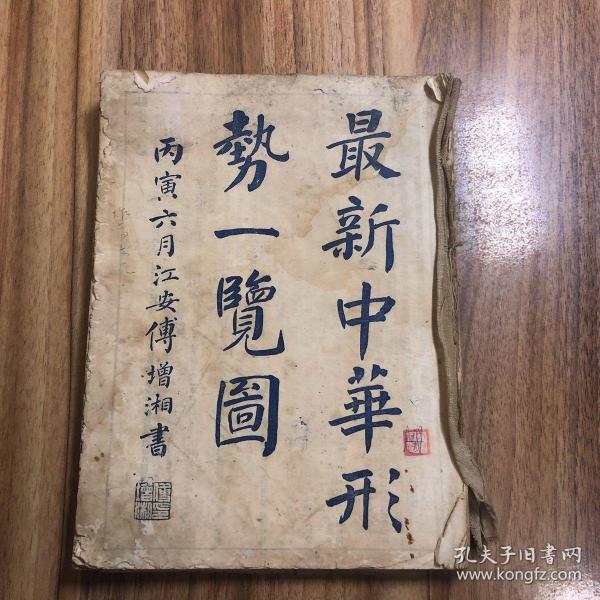 最新中華形
勢一覽圖
丙寅六月江安傅增湘書
孔夫子旧书网
www.kongfz.com